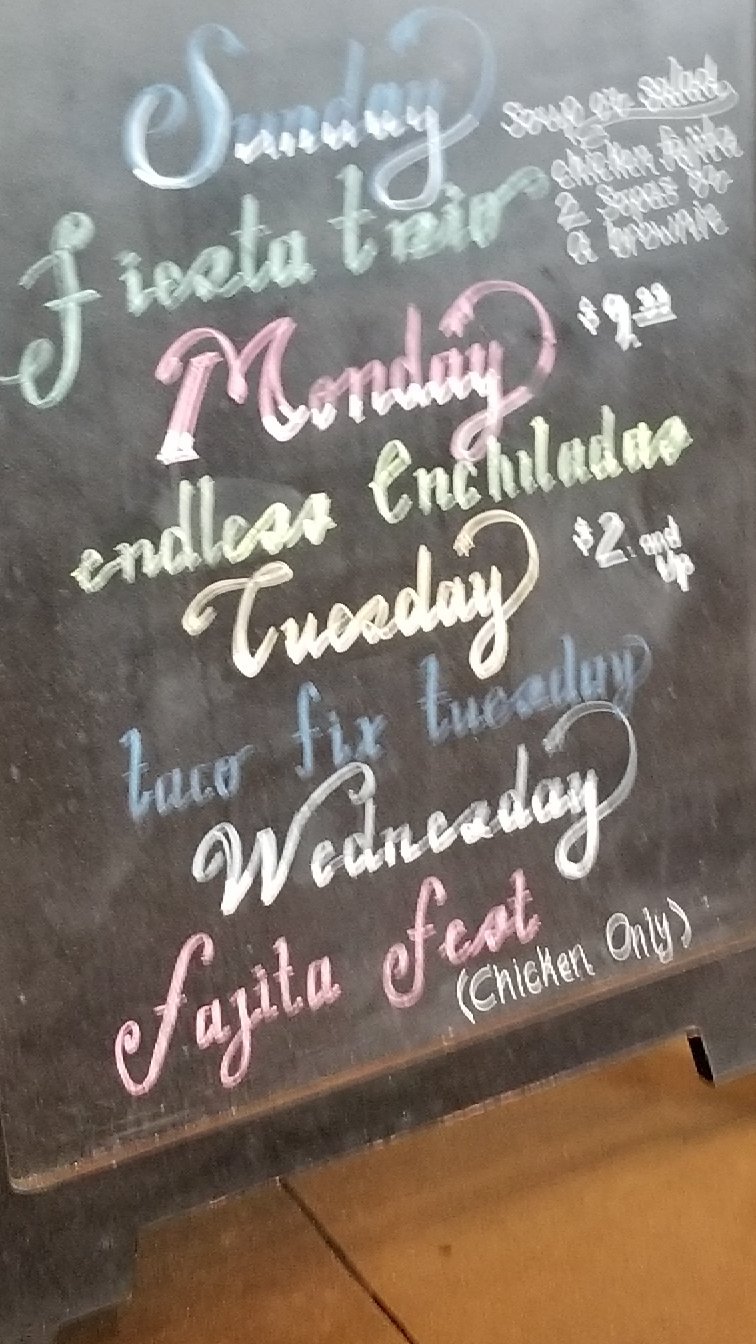 Sunday
Soup or Salad
chicken fajita
2 Sopas or
a brownie
fiesta trio
Monday
$9.99
endless Enchiladas
Tuesday
$2. and
Up
taco fix tuesday
Wednesday
fajita fest
(Chicken Only)